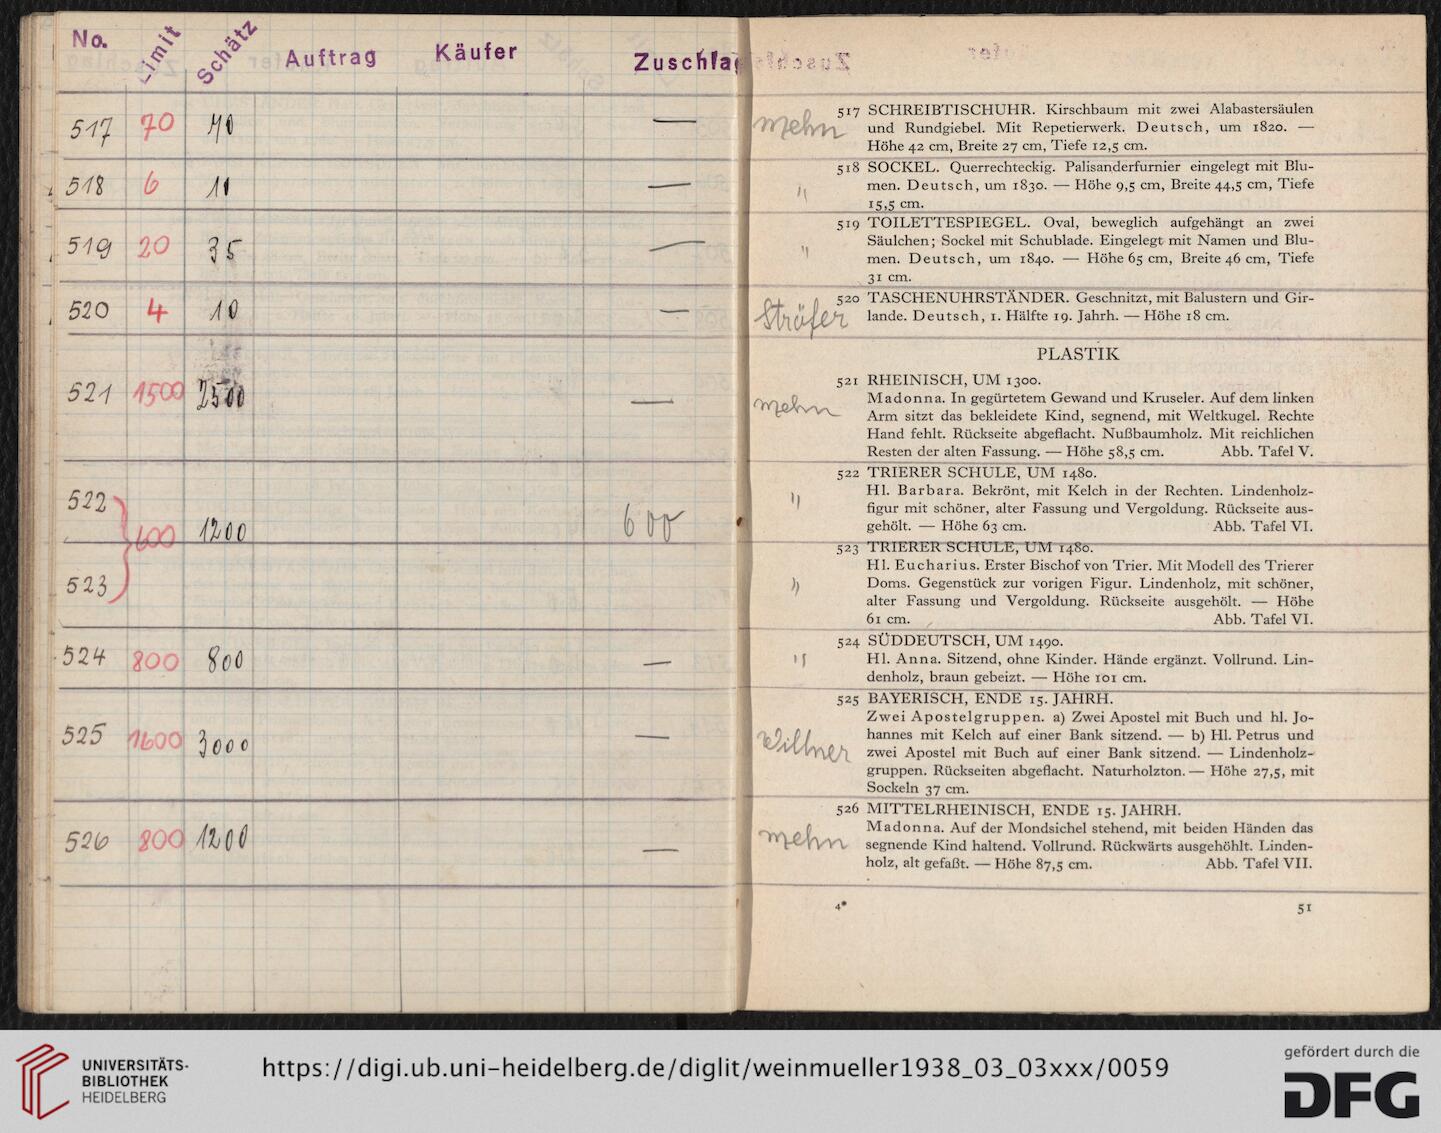 No. Limit Schätz Auftrag Käufer Zuschlag
517 70 70 —
518 6 11 —
519 20 35 —
520 4 10 —
521 1500 2500 —
522
600 1200 600
523
524 800 800 —
525 1600 3000 —
526 800 1200 —
517 SCHREIBTISCHUHR. Kirschbaum mit zwei Alabastersäulen
und Rundgiebel. Mit Repetierwerk. Deutsch, um 1820. —
Höhe 42 cm, Breite 27 cm, Tiefe 12,5 cm.
518 SOCKEL. Querrechteckig. Palisanderfurnier eingelegt mit Blu-
" men. Deutsch, um 1830. — Höhe 9,5 cm, Breite 44,5 cm, Tiefe
15,5 cm.
519 TOILETTESPIEGEL. Oval, beweglich aufgehängt an zwei
Säulchen; Sockel mit Schublade. Eingelegt mit Namen und Blu-
" men. Deutsch, um 1840. — Höhe 65 cm, Breite 46 cm, Tiefe
31 cm.
520 TASCHENUHRSTÄNDER. Geschnitzt, mit Balustern und Gir-
Sträfer lande. Deutsch, 1. Hälfte 19. Jahrh. — Höhe 18 cm.
PLASTIK
521 RHEINISCH, UM 1300.
Madonna. In gegürtetem Gewand und Kruseler. Auf dem linken
Arm sitzt das bekleidete Kind, segnend, mit Weltkugel. Rechte
Hand fehlt. Rückseite abgeflacht. Nußbaumholz. Mit reichlichen
Resten der alten Fassung. — Höhe 58,5 cm. Abb. Tafel V.
522 TRIERER SCHULE, UM 1480.
" Hl. Barbara. Bekrönt, mit Kelch in der Rechten. Lindenholz-
figur mit schöner, alter Fassung und Vergoldung. Rückseite aus-
gehölt. — Höhe 63 cm. Abb. Tafel VI.
523 TRIERER SCHULE, UM 1480.
Hl. Eucharius. Erster Bischof von Trier. Mit Modell des Trierer
" Doms. Gegenstück zur vorigen Figur. Lindenholz, mit schöner,
alter Fassung und Vergoldung. Rückseite ausgehölt. — Höhe
61 cm. Abb. Tafel VI.
524 SÜDDEUTSCH, UM 1490.
" Hl. Anna. Sitzend, ohne Kinder. Hände ergänzt. Vollrund. Lin-
denholz, braun gebeizt. — Höhe 101 cm.
525 BAYERISCH, ENDE 15. JAHRH.
Zwei Apostelgruppen. a) Zwei Apostel mit Buch und hl. Jo-
hannes mit Kelch auf einer Bank sitzend. — b) Hl. Petrus und
Willner zwei Apostel mit Buch auf einer Bank sitzend. — Lindenholz-
gruppen. Rückseiten abgeflacht. Naturholzton. — Höhe 27,5, mit
Sockeln 37 cm.
526 MITTELRHEINISCH, ENDE 15. JAHRH.
Madonna. Auf der Mondsichel stehend, mit beiden Händen das
segnende Kind haltend. Vollrund. Rückwärts ausgehöhlt. Linden-
holz, alt gefaßt. — Höhe 87,5 cm. Abb. Tafel VII.
4* 51
UNIVERSITÄTS-
BIBLIOTHEK
HEIDELBERG
https://digi.ub.uni-heidelberg.de/diglit/weinmueller1938_03_03xxx/0059
gefördert durch die
DFG